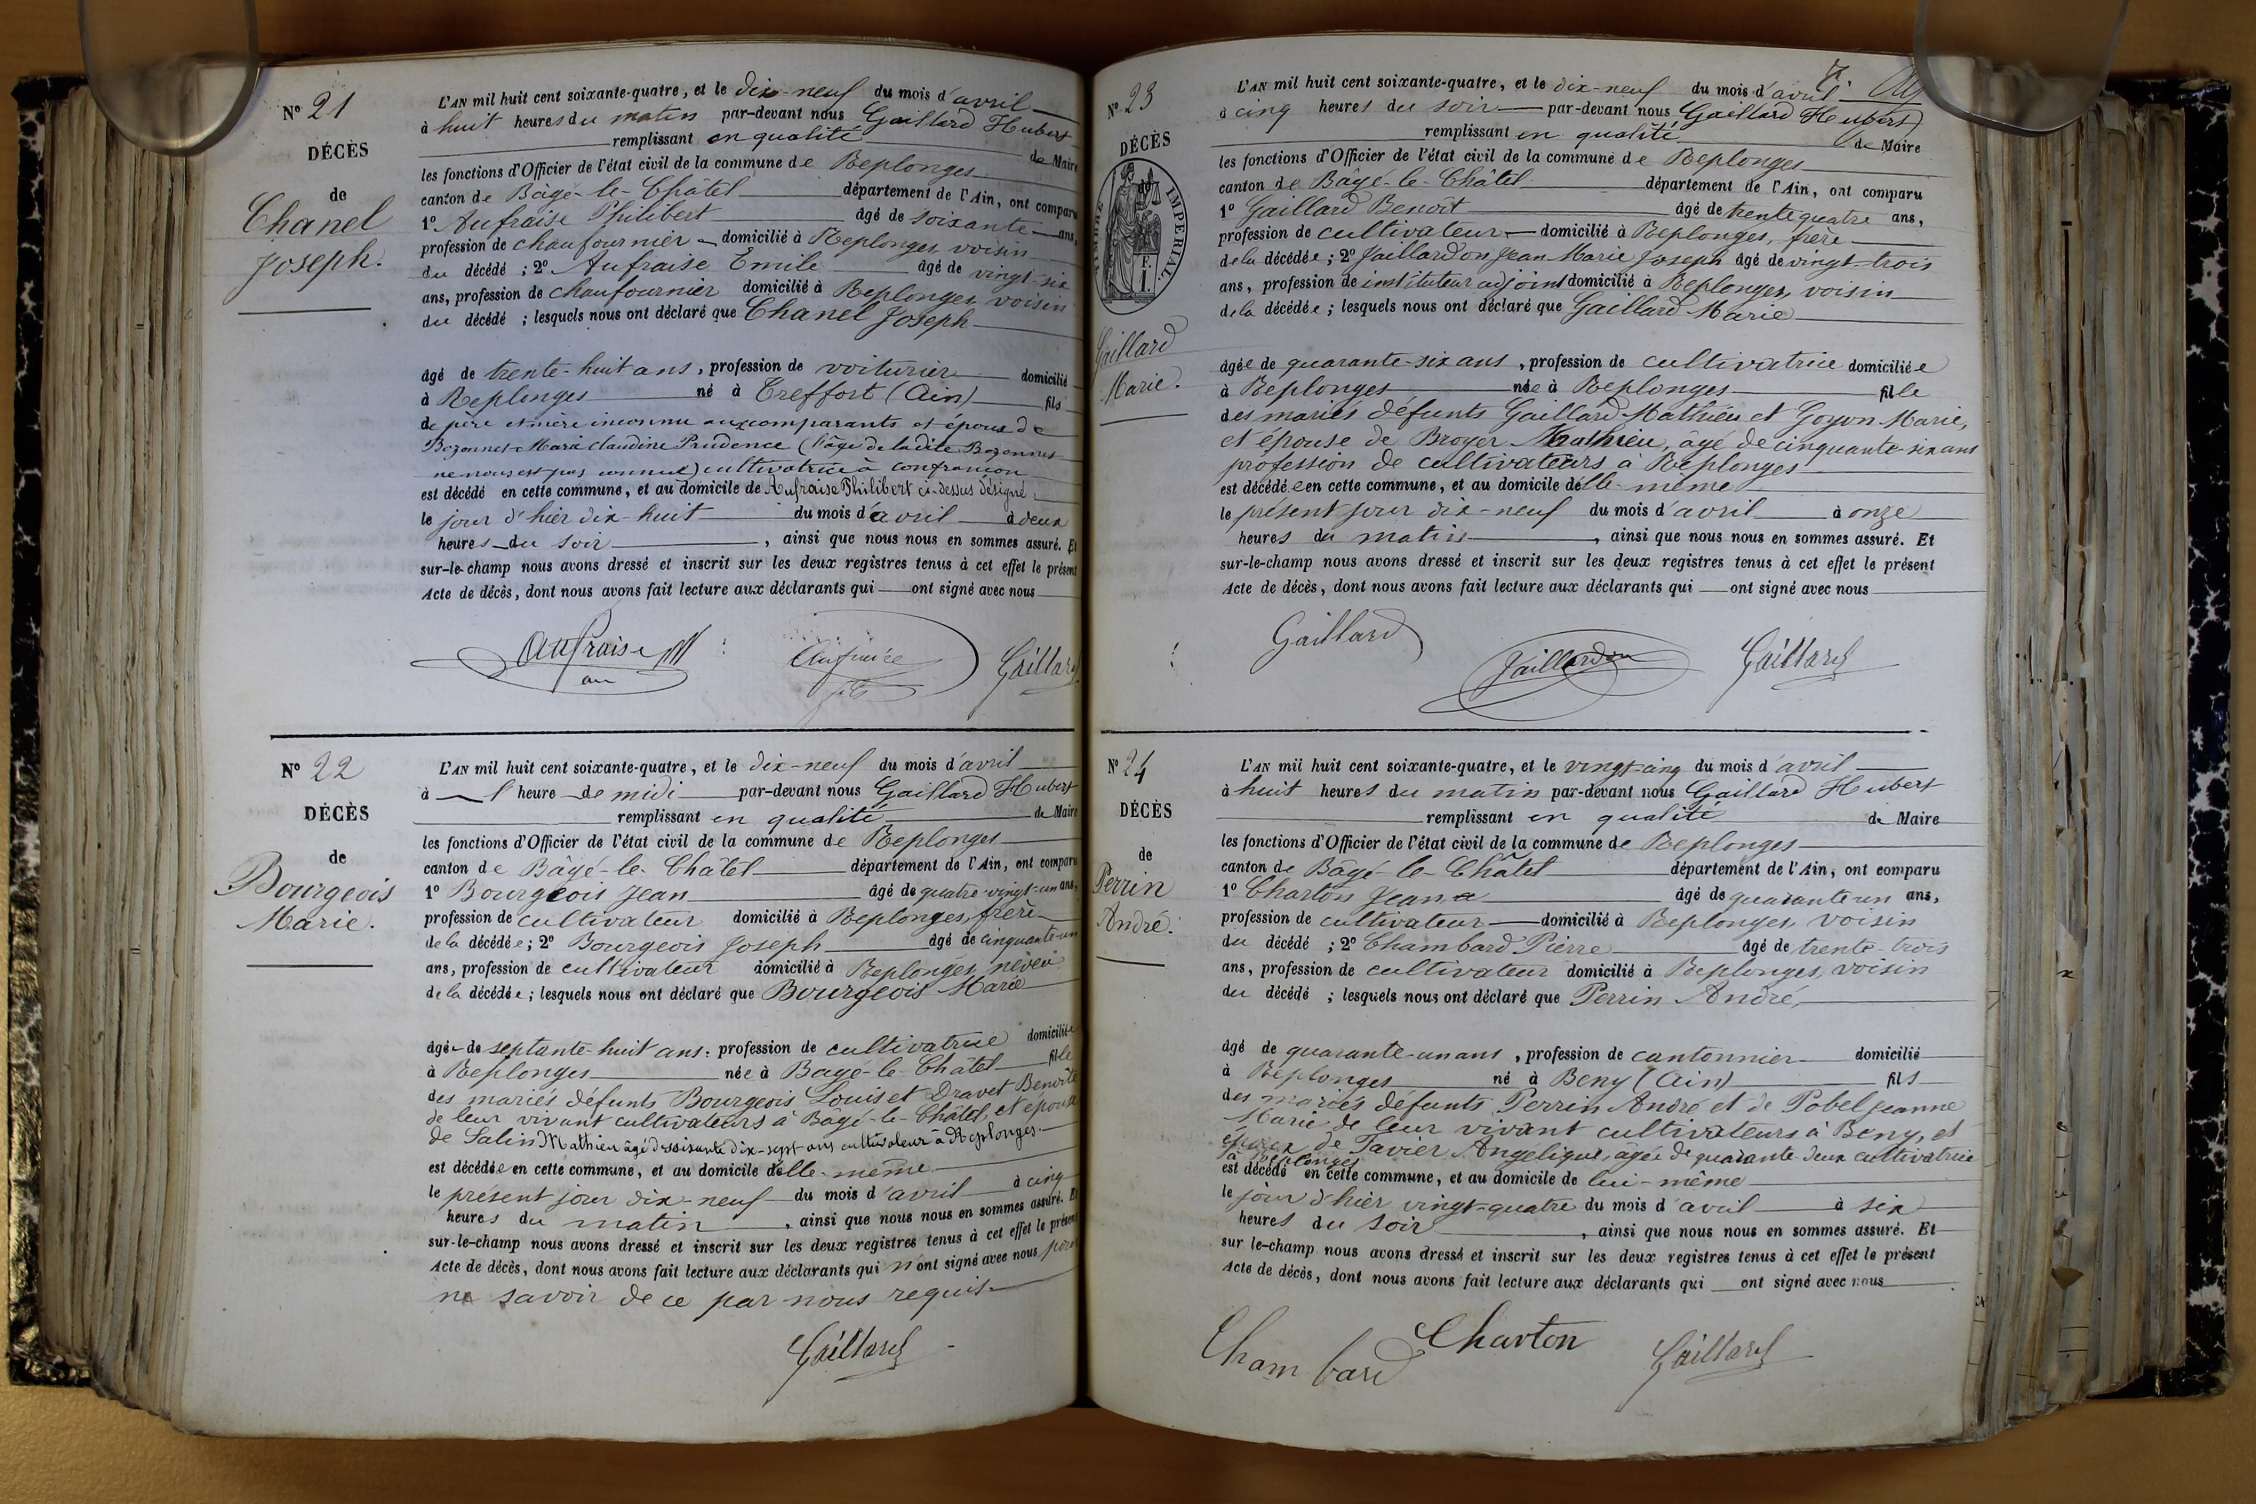 N° 21
DÉCÈS
de
Chanel
Joseph.
L'AN mil huit cent soixante-quatre, et le dix-neuf du mois d'avril
à huit heures du matin par-devant nous Gaillard Hubert
remplissant en qualité de Maire
les fonctions d'Officier de l'état civil de la commune de Replonges
canton de Bâgé-le-Châtel département de l'Ain, ont comparu
1° Aufraise Philibert âgé de soixante ans,
profession de chaufournier domicilié à Replonges, voisin
du décédé ; 2° Aufraise Emile âgé de vingt-six
ans, profession de chaufournier domicilié à Replonges, voisin
du décédé ; lesquels nous ont déclaré que Chanel Joseph
âgé de trente-huit ans, profession de voiturier domicilié
à Replonges né à Treffort (Ain) fils
de père et mère inconnu aux comparants et époux de
Bozonnet Marie Claudine Prudence (l'âge de la dite Bozonnet
ne nous est pas connue) cultivatrice à Confrançon
est décédé en cette commune, et au domicile de Aufraise Philibert ci-dessus désigné
le jour d'hier dix-huit du mois d'avril à deux
heures du soir, ainsi que nous nous en sommes assuré. Et
sur-le-champ nous avons dressé et inscrit sur les deux registres tenus à cet effet le présent
Acte de décès, dont nous avons fait lecture aux déclarants qui ont signé avec nous
Aufraise Aufraise Gaillard
fils
N° 22
DÉCÈS
de
Bourgeois
Marie.
L'AN mil huit cent soixante-quatre, et le dix-neuf du mois d'avril
à l'heure de midi par-devant nous Gaillard Hubert
remplissant en qualité de Maire
les fonctions d'Officier de l'état civil de la commune de Replonges
canton de Bâgé-le-Châtel département de l'Ain, ont comparu
1° Bourgeois Jean âgé de quatre-vingt-un ans,
profession de cultivateur domicilié à Replonges, frère
de la décédée ; 2° Bourgeois Joseph âgé de cinquante-un
ans, profession de cultivateur domicilié à Replonges, neveu
de la décédée ; lesquels nous ont déclaré que Bourgeois Marie
âgée de septante-huit ans, profession de cultivatrice domiciliée
à Replonges née à Bâgé-le-Châtel fille
des mariés défunts Bourgeois Louis et Dravet Benoîte
de leur vivant cultivateurs à Bâgé-le-Châtel, et épouse
de Salin Mathieu âgé de soixante dix-sept ans cultivateur à Replonges.
est décédée en cette commune, et au domicile d'elle-même
le présent jour dix-neuf du mois d'avril à cinq
heures du matin, ainsi que nous nous en sommes assuré. Et
sur-le-champ nous avons dressé et inscrit sur les deux registres tenus à cet effet le présent
Acte de décès, dont nous avons fait lecture aux déclarants qui n'ont signé avec nous pour
ne savoir de ce par nous requis
Gaillard
7.
N° 23
DÉCÈS
de
TIMBRE IMPERIAL
Gaillard
Marie.
L'AN mil huit cent soixante-quatre, et le dix-neuf du mois d'avril
à cinq heures du soir par-devant nous Gaillard Hubert
remplissant en qualité de Maire
les fonctions d'Officier de l'état civil de la commune de Replonges
canton de Bâgé-le-Châtel département de l'Ain, ont comparu
1° Gaillard Benoît âgé de trente quatre ans,
profession de cultivateur domicilié à Replonges, frère
de la décédée ; 2° Jaillardon Jean Marie Joseph âgé de vingt-trois
ans, profession de instituteur adjoint domicilié à Replonges, voisin
de la décédée ; lesquels nous ont déclaré que Gaillard Marie
âgée de quarante-six ans, profession de cultivatrice domiciliée
à Replonges née à Replonges fille
des mariés défunts Gaillard Mathieu et Goyon Marie,
et épouse de Broyer Mathieu, âgé de cinquante-six ans
profession de cultivateurs à Replonges
est décédée en cette commune, et au domicile d'elle-même
le présent jour dix-neuf du mois d'avril à onze
heures du matin, ainsi que nous nous en sommes assuré. Et
sur-le-champ nous avons dressé et inscrit sur les deux registres tenus à cet effet le présent
Acte de décès, dont nous avons fait lecture aux déclarants qui ont signé avec nous
Gaillard Jaillardon Gaillard
N° 24
DÉCÈS
de
Perrin
André.
L'AN mil huit cent soixante-quatre, et le vingt-cinq du mois d'avril
à huit heures du matin par-devant nous Gaillard Hubert
remplissant en qualité de Maire
les fonctions d'Officier de l'état civil de la commune de Replonges
canton de Bâgé-le-Châtel département de l'Ain, ont comparu
1° Charton Jean âgé de quarante-un ans,
profession de cultivateur domicilié à Replonges, voisin
du décédé ; 2° Chambard Pierre âgé de trente-trois
ans, profession de cultivateur domicilié à Replonges, voisin
du décédé ; lesquels nous ont déclaré que Perrin André,
âgé de quarante-un ans, profession de cantonnier domicilié
à Replonges né à Beny (Ain) fils
des mariés défunts Perrin André et de Pobel Jeanne
Marie de leur vivant cultivateurs à Beny, et
époux de Tavier Angélique, âgée de quarante-deux cultivatrice
à Replonges
est décédé en cette commune, et au domicile de lui-même
le jour d'hier vingt-quatre du mois d'avril à six
heures du soir, ainsi que nous nous en sommes assuré. Et
sur le-champ nous avons dressé et inscrit sur les deux registres tenus à cet effet le présent
Acte de décès, dont nous avons fait lecture aux déclarants qui ont signé avec nous
Chambard Charton Gaillard